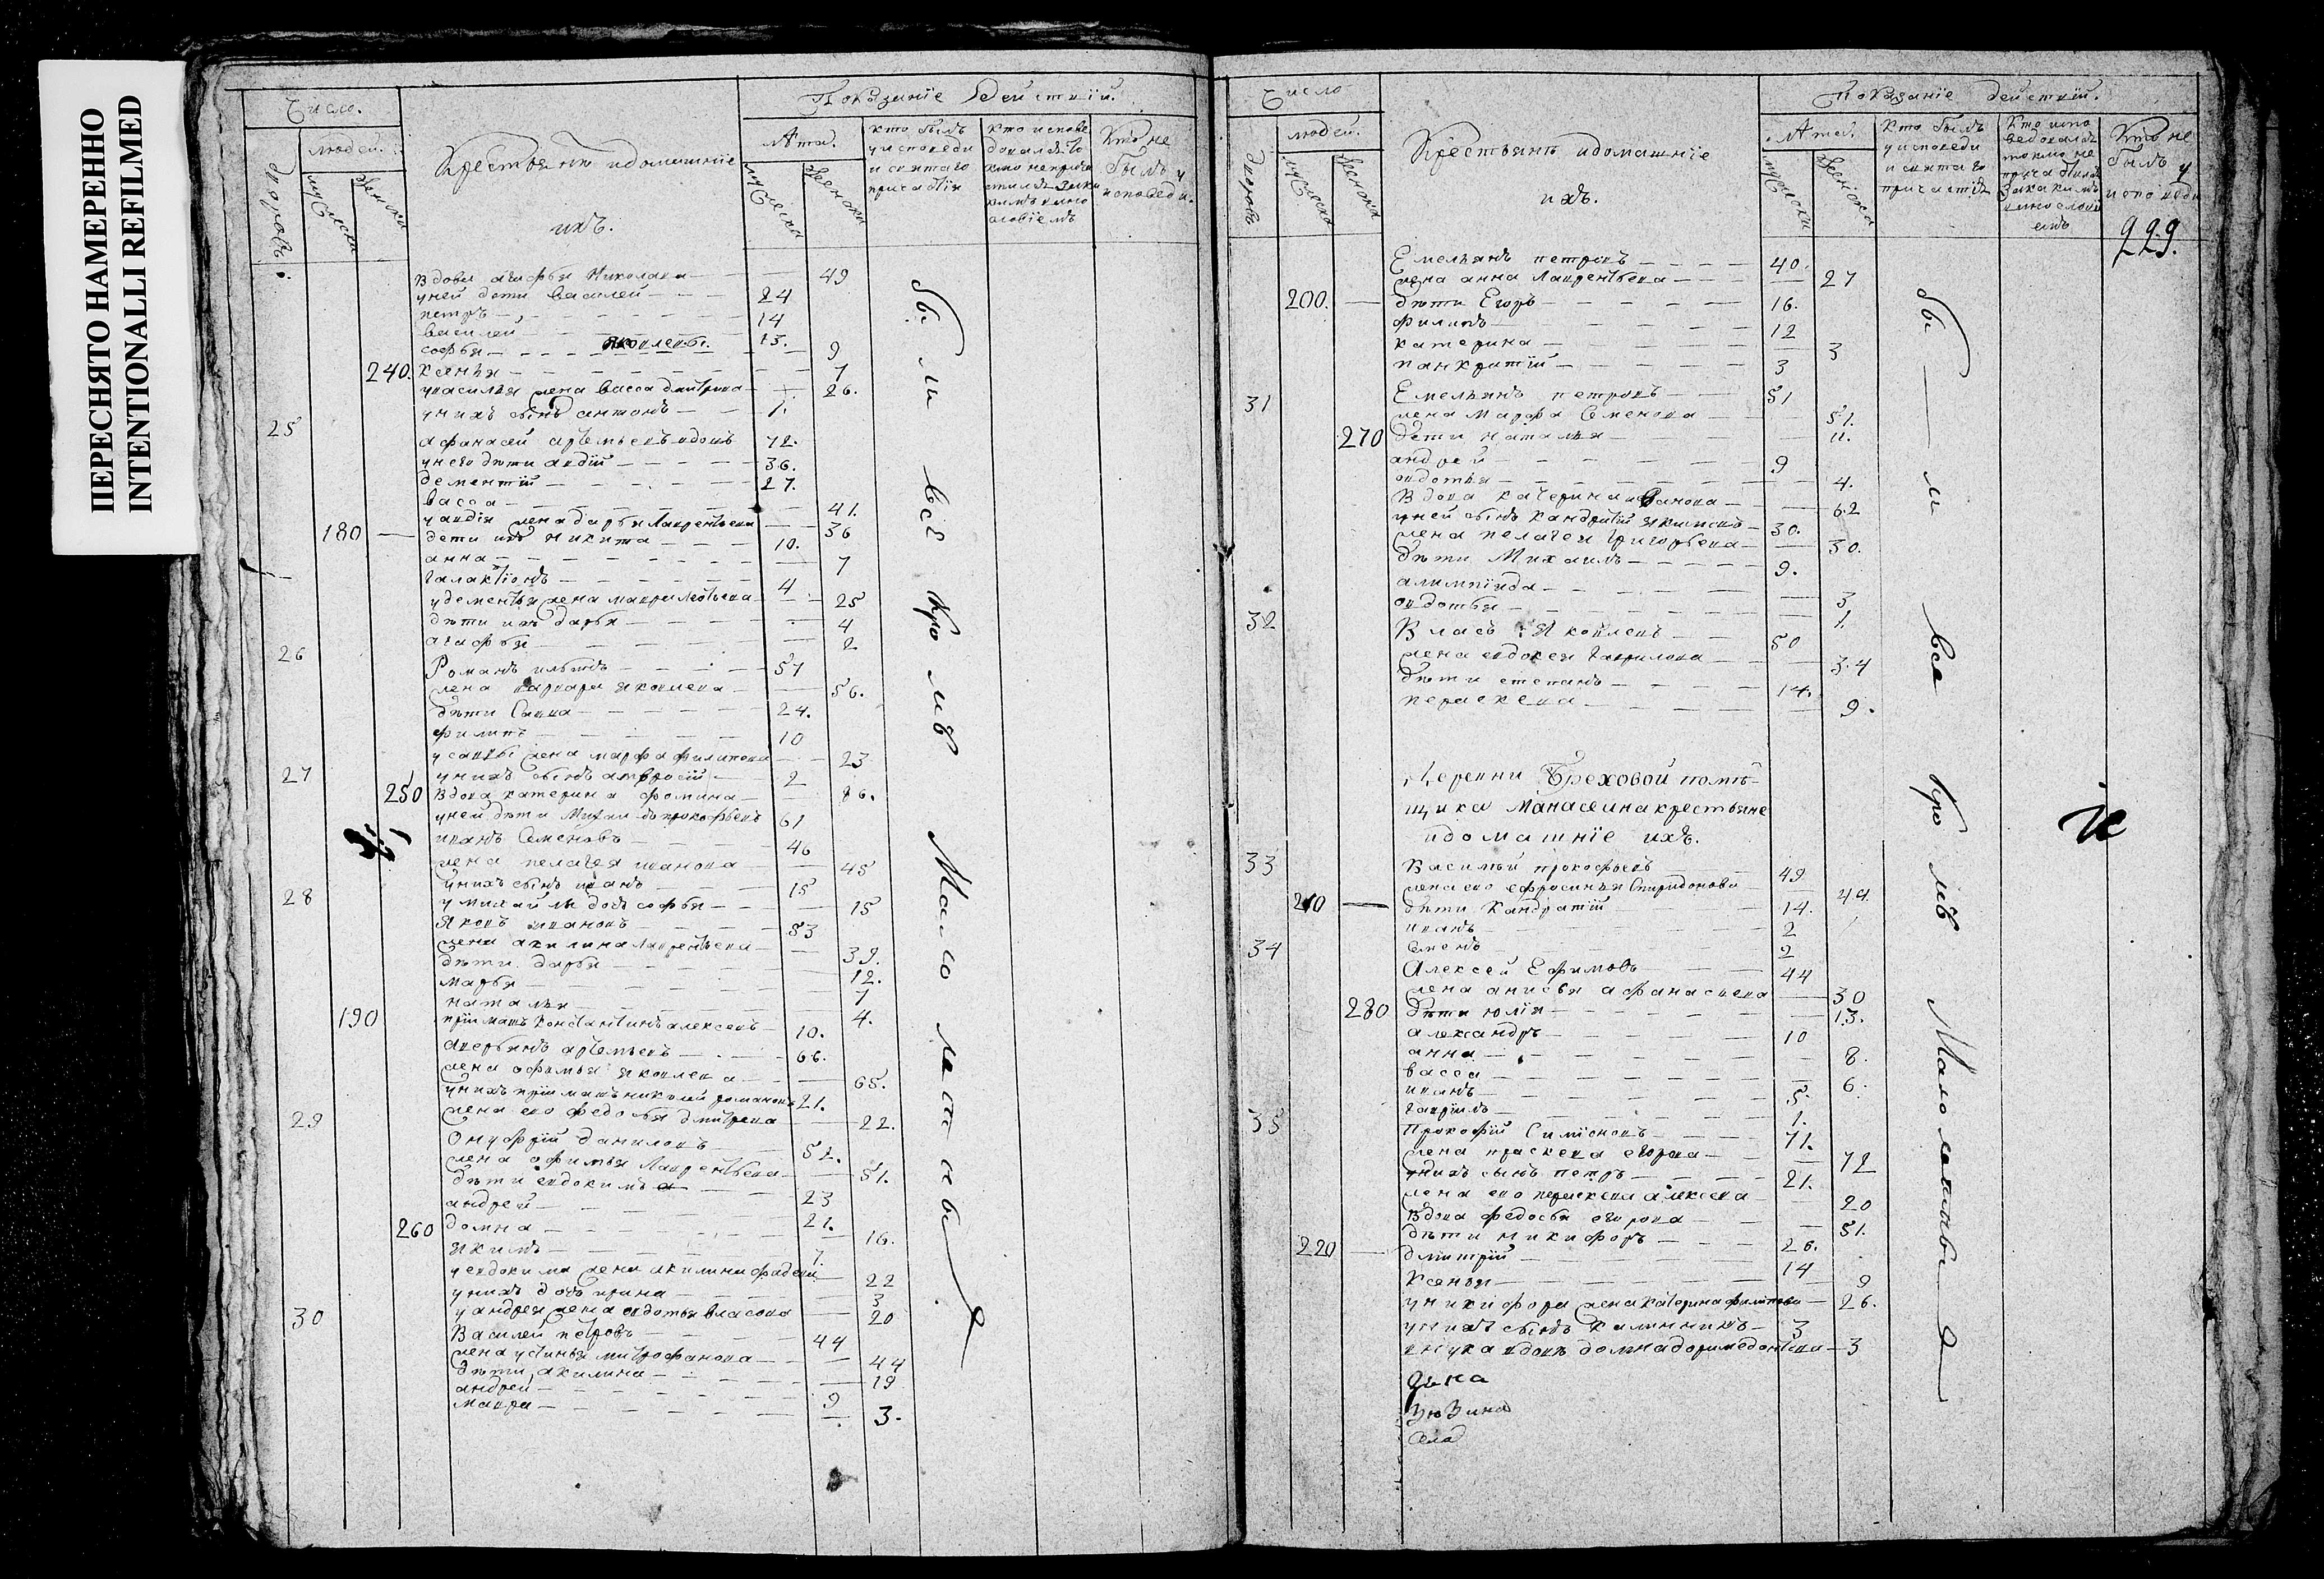 ПЕРЕСНЯТО НАМЕРЕННО
INTENTIONALLI REFILMED
Число.
людей.
дворовъ
мужеска
женска
Крестьянъ идомашніе
ихъ.
Показание действий.
Лѣта.
мужеска
женска
Кто былъ
уисповеди
и святаго
причастія
Кто не
былъ у
исповеди.
Вдова агафья Николаева 49
уней дети василей 24
петръ 14
василей 13.
софья 9
240. Ксенья 7
увасилья жена васса дмитрева 26.
унихъ сынъ антонъ 1.
25
афанасей артемьевъ вдовъ 72.
унего дѣти авдій 36.
дементій 27.
васса 41.
уавдія жена дарья Лаврентьева 36
180 дети ихъ никита 10.
анна 7
галактіонъ 4
удементья жена мавра 25
дѣти ихъ дарья 4
агафья 2
26
Романъ 57
жена варвара яковлева 56.
дѣти Савва 24.
филипъ 10
усаввы жена марфа филипова 23
27
унихъ сынъ амвросій 2
250 Вдова катерина фомина 86.
уней дѣти прокофьевъ 61
иванъ Семеновъ 46
жена пелагея иванова 45
унихъ сынъ иванъ 15
28
умихайлы дочь софья 15
Яковъ ивановъ 53
жена акилина лаврентьева 39.
дѣти дарья 12.
марья 7
наталья 4.
190 приімашъ Константинъ алексеевъ 10.
аверьянъ артемьевъ 66.
жена офимья яковлева 65.
унихъ приімашъ николай романовъ 21.
жена его федосья дмитрева 22.
29
Онуфрій даниловъ 52.
жена офимья Лаврентьева 51.
дѣти евдокимъ 23
андрей 21.
260 домна 16.
якимъ 7.
уевдокима жена акилина фадеева 22
унихъ дочь ирина 3
уандрея жена авдотья власова 20
30
Василей петровъ 44
жена устинья митрофанова 44
дѣти акилина 19
андрей 9
мавра 3.
были всѣ кромѣ Малолетныхъ
Число
людей.
дворовъ
мужеска
женска
Крестьянъ идомашніе
ихъ.
Показание действій.
Лѣта.
мужеска
женска
Кто былъ
уисповеди
и святаго
Кто не
былъ у
исповеди
229.
Емельянъ петровъ 40.
жена анна Лаврентьева 27
200. дѣти Егоръ 16.
филипъ 12
катерина 3
панкратій 3
31
Емельянъ петровъ 51
жена Марфа Семенова 51.
270 дѣти наталья 11.
андрей 9
авдотья 4.
Вдова катерина иванова 62
уней сынъ кандратій якимовъ 30.
жена пелагея григорьева 30.
дѣти Михаилъ 9.
алимпіяда 3
авдотья 1.
32
Власъ Яковлевъ 50
жена евдокея гаврилова 34
дѣти степанъ 14.
пераскева 9.
Деревни Бреховой помѣ-
щика Манасеина крестьяне
идомашніе ихъ.
33
Василий прокофьевъ 49
жена его ефросинья Спиридонова 44
210 дѣти Кандратій 14.
иванъ 2
34
Семенъ 2
Алексей Ефимовъ 44
жена анисья афанасьева 30
280 дѣти юлія 13.
александръ 10
анна 8.
васса 6.
иванъ 5.
гаврилъ 1.
35
Прокофій Симіоновъ 71.
жена праскева егорова 72
унихъ сынъ петръ 21.
жена его пераскева алексева 20
Вдова федосья егорова 51.
дѣти никифоръ 26.
220 дмитрій 14
Ксенья 9
уникифора жена катерина филипова 26.
унихъ сынъ калинникъ 3
внука вдовъ домна доримедонтова 3
Зюзина
Села
были все кромѣ Малолетныхъ